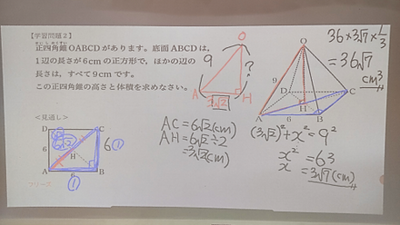 【学習問題2】
正四角錐OABCDがあります。底面ABCDは、
1辺の長さが6cmの正方形で、ほかの辺の
長さは、すべて9cmです。
この正四角錐の高さと体積を求めなさい。
O
9
?
A
3√2
H
O
D
C
H
A
B
36×3√7×1/3
=36√7
cm³
<見通し>
D
C
6√2
6
H
6
①
A
6
B
①
AC=6√2(cm)
AH=6√2÷2
=3√2(cm)
(3√2)²+x²=9²
x²=63
x=3√7(cm)